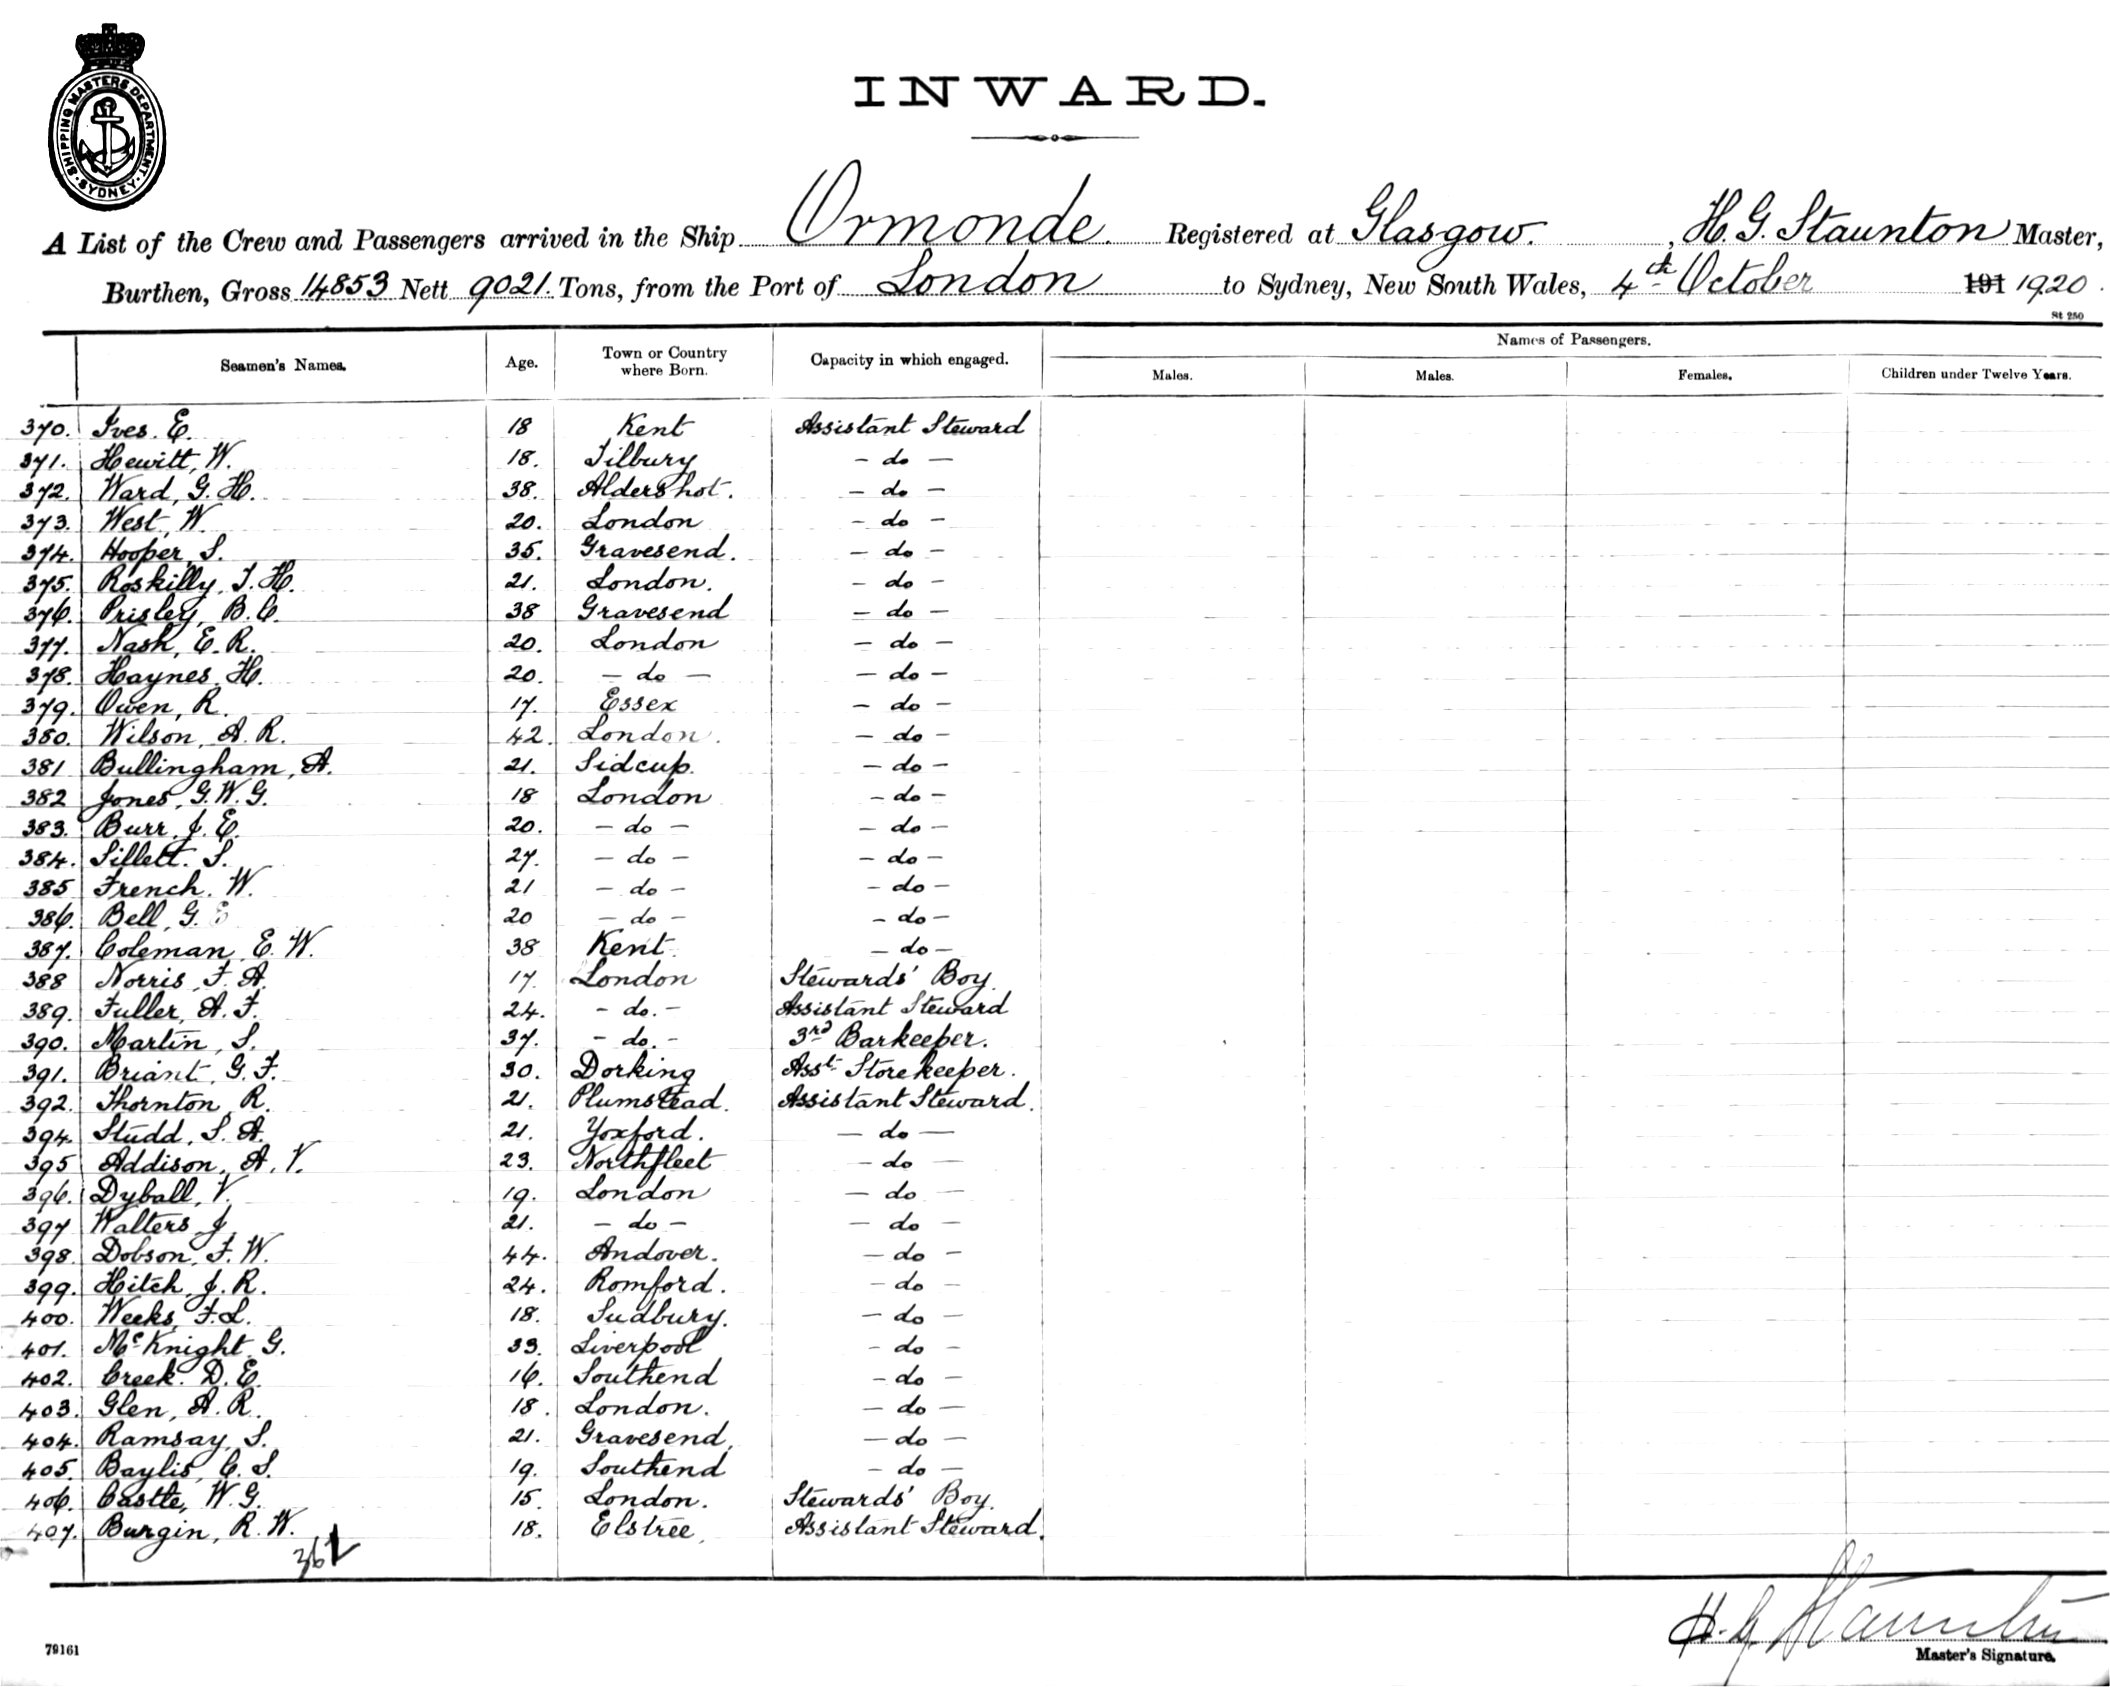 SHIPPING MASTERS DEPARTMENT · SYDNEY ·
INWARD.
A List of the Crew and Passengers arrived in the Ship Ormonde. Registered at Glasgow. , H. G. Staunton Master,
Burthen, Gross 14853 Nett 9021. Tons, from the Port of London to Sydney, New South Wales, 4th October 191 1920.
St 250
Seamen's Names. Age. Town or Country where Born. Capacity in which engaged. Names of Passengers.
Males. Males. Females. Children under Twelve Years.
370. Ives. E. 18 Kent Assistant Steward
371. Hewitt, W. 18. Tilbury - do -
372. Ward, G. H. 38. Aldershot. - do -
373. West, W. 20. London - do -
374. Hooper, S. 35. Gravesend. - do -
375. Roskilly, T. H. 21. London. - do -
376. Prisley, B. C. 38 Gravesend - do -
377. Nash, E. R. 20. London - do -
378. Haynes, H. 20. - do - - do -
379. Owen, R. 17. Essex - do -
380. Wilson, A. R. 42. London. - do -
381 Bullingham, A. 21. Sidcup. - do -
382 Jones, G. W. G. 18 London - do -
383. Burr, J. E. 20. - do - - do -
384. Sillett. S. 27. - do - - do -
385 French. W. 21 - do - - do -
386. Bell, G. E 20 - do - - do -
387. Coleman, E. W. 38 Kent. - do -
388 Norris, F. A. 17. London Stewards' Boy.
389. Fuller, A. F. 24. - do. - Assistant Steward
390. Martin, S. 37. - do. - 3rd Barkeeper.
391. Briant, G. F. 30. Dorking Asst. Storekeeper.
392. Thornton, R. 21. Plumstead. Assistant Steward.
394. Studd, S. A. 21. Yoxford. - do -
395 Addison, A. V. 23. Northfleet - do -
396. Dyball, V. 19. London - do -
397 Walters, J. 21. - do - - do -
398. Dobson, F. W. 44. Andover. - do -
399. Hitch, J. R. 24. Romford. - do -
400. Weeks, F. L. 18. Sudbury. - do -
401. McKnight, G. 33. Liverpool - do -
402. Creek. D. E. 16. Southend - do -
403. Glen, A. R. 18. London. - do -
404. Ramsay, S. 21. Gravesend. - do -
405. Baylis, C. S. 19. Southend - do -
406. Castle, W. G. 15. London. Stewards' Boy.
407. Burgin, R. W. 18. Elstree. Assistant Steward.
H. G. Staunton
79161 Master's Signature.